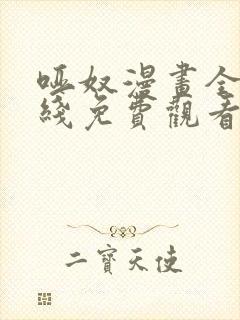 啞奴漫畫全
綫免費觀看
二寶天使